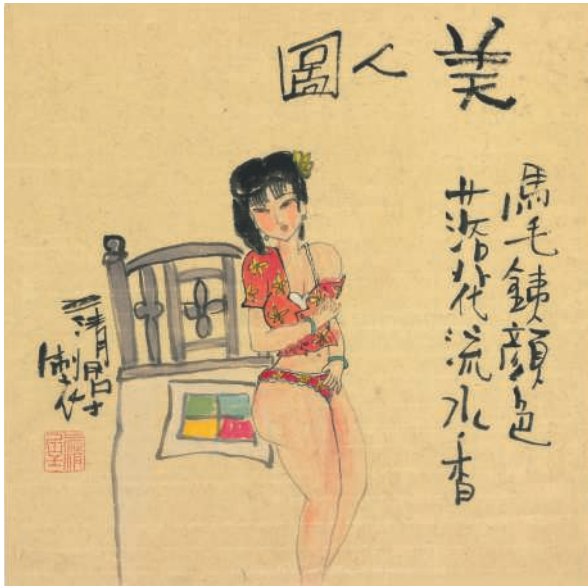 美人圖
毛銕顏色
落花流水香
清居士
製作